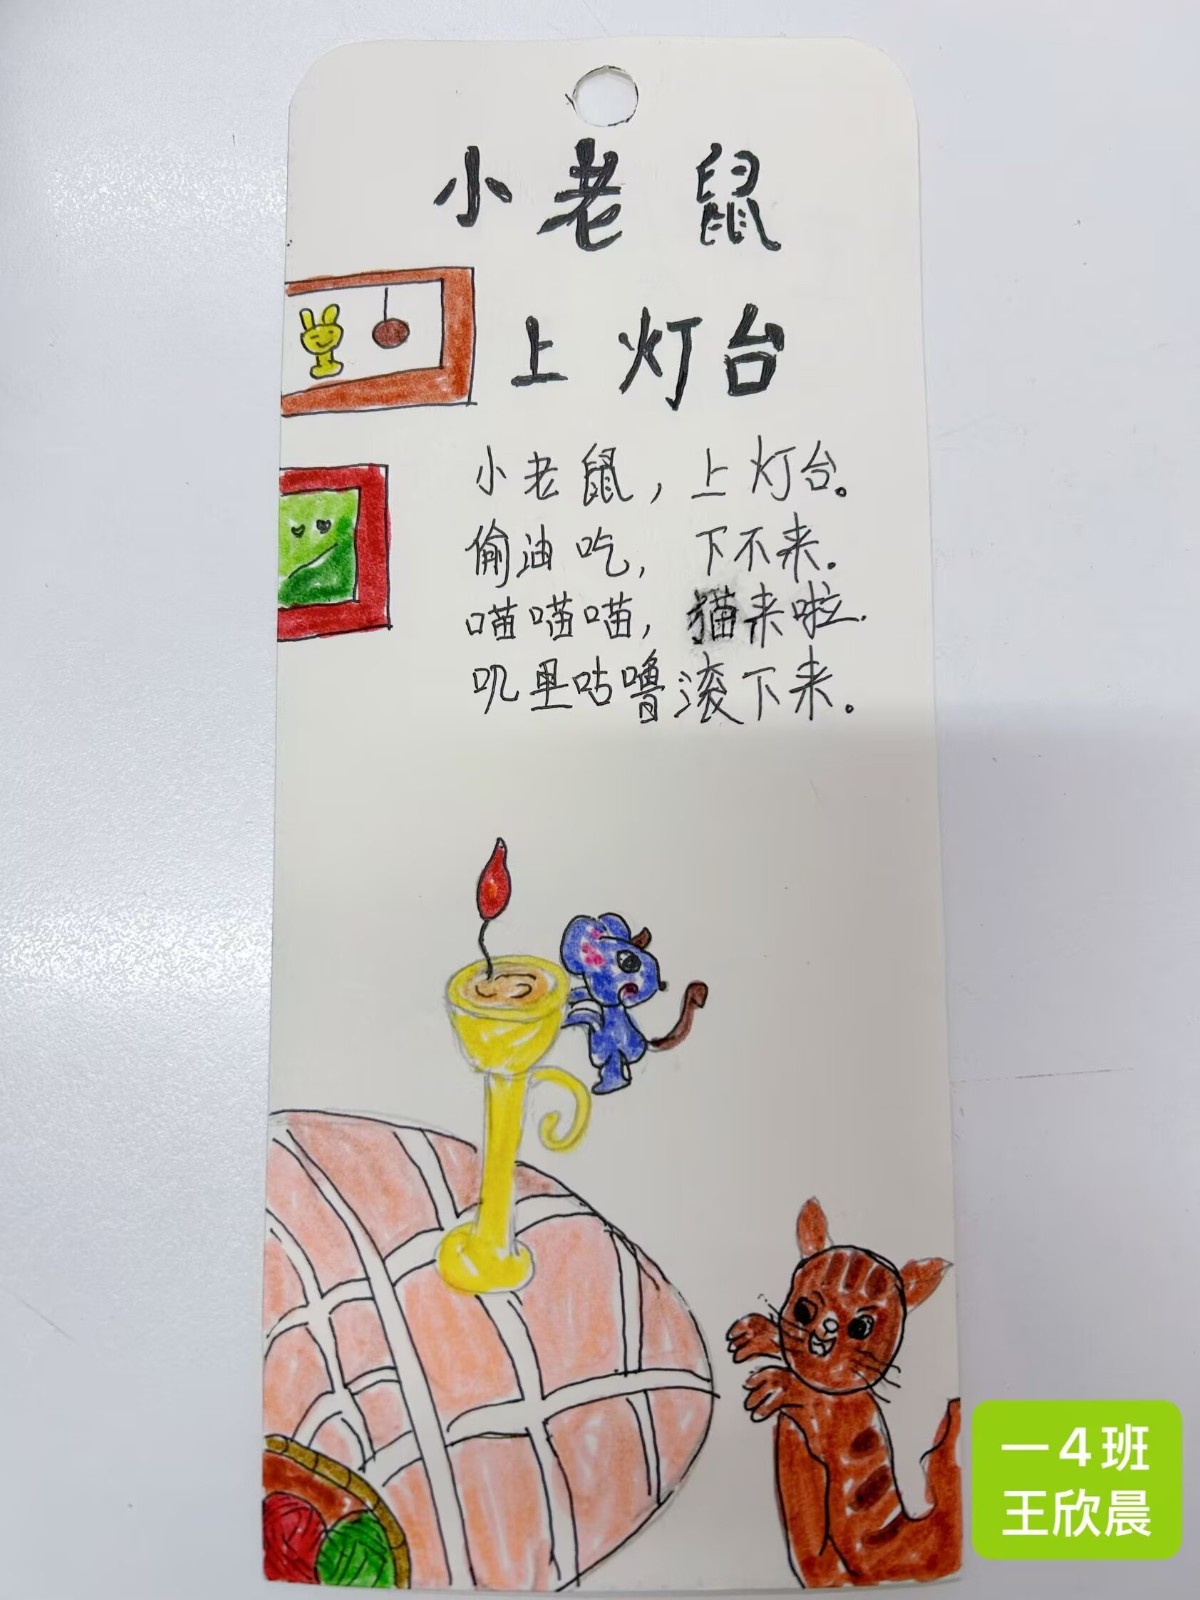 小老鼠
上灯台
小老鼠，上灯台。
偷油吃，下不来.
喵喵喵，猫来啦.
叽里咕噜滚下来。
一4班
王欣晨